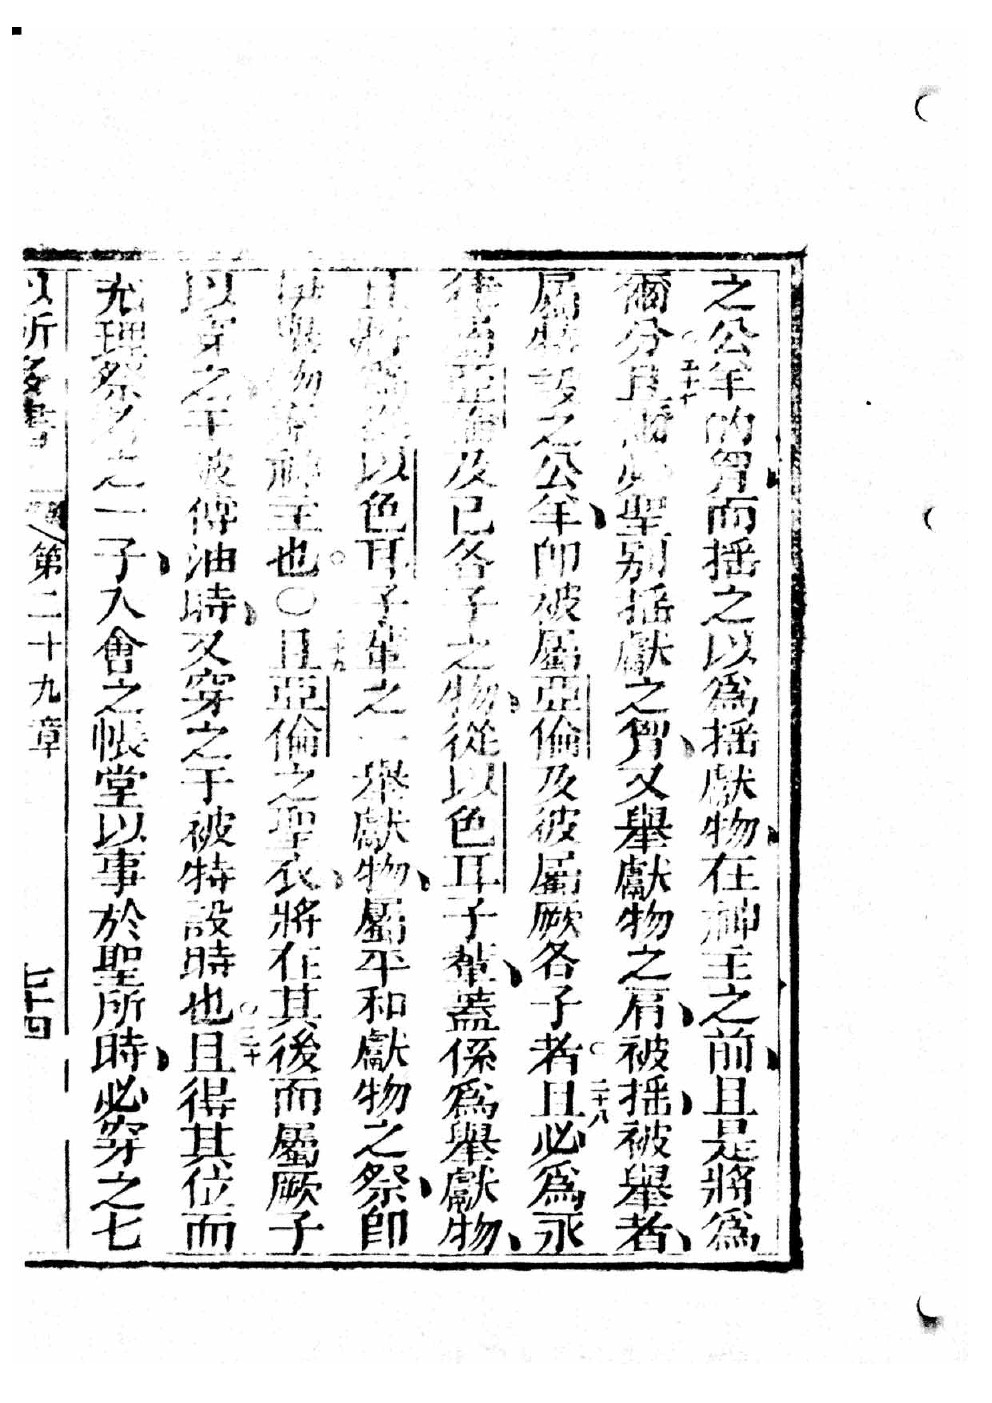 之公羊的胷、而揺之以為揺獻物、在神主之前、且是將為
爾分。且爾必聖别揺獻之胷、又舉獻物之肩、被揺、被舉者、
屬特設之公羊、即被屬亞倫及彼屬厥各子者。二十八且必為永
從亞倫及已各子之物、從以色耳子輩、蓋係為舉獻物、
且將為從以色耳子輩之一舉獻物、屬平和獻物之祭、即
伊舉物于神主也。〇二十九且亞倫之聖衣、將在其後而屬厥子
以穿之于被傅油時、又穿之于被特設時也。三十且得其位而
充理祭者之一子、入會之帳堂以事於聖所時、必穿之七
以所多書 第二十九章 七十四